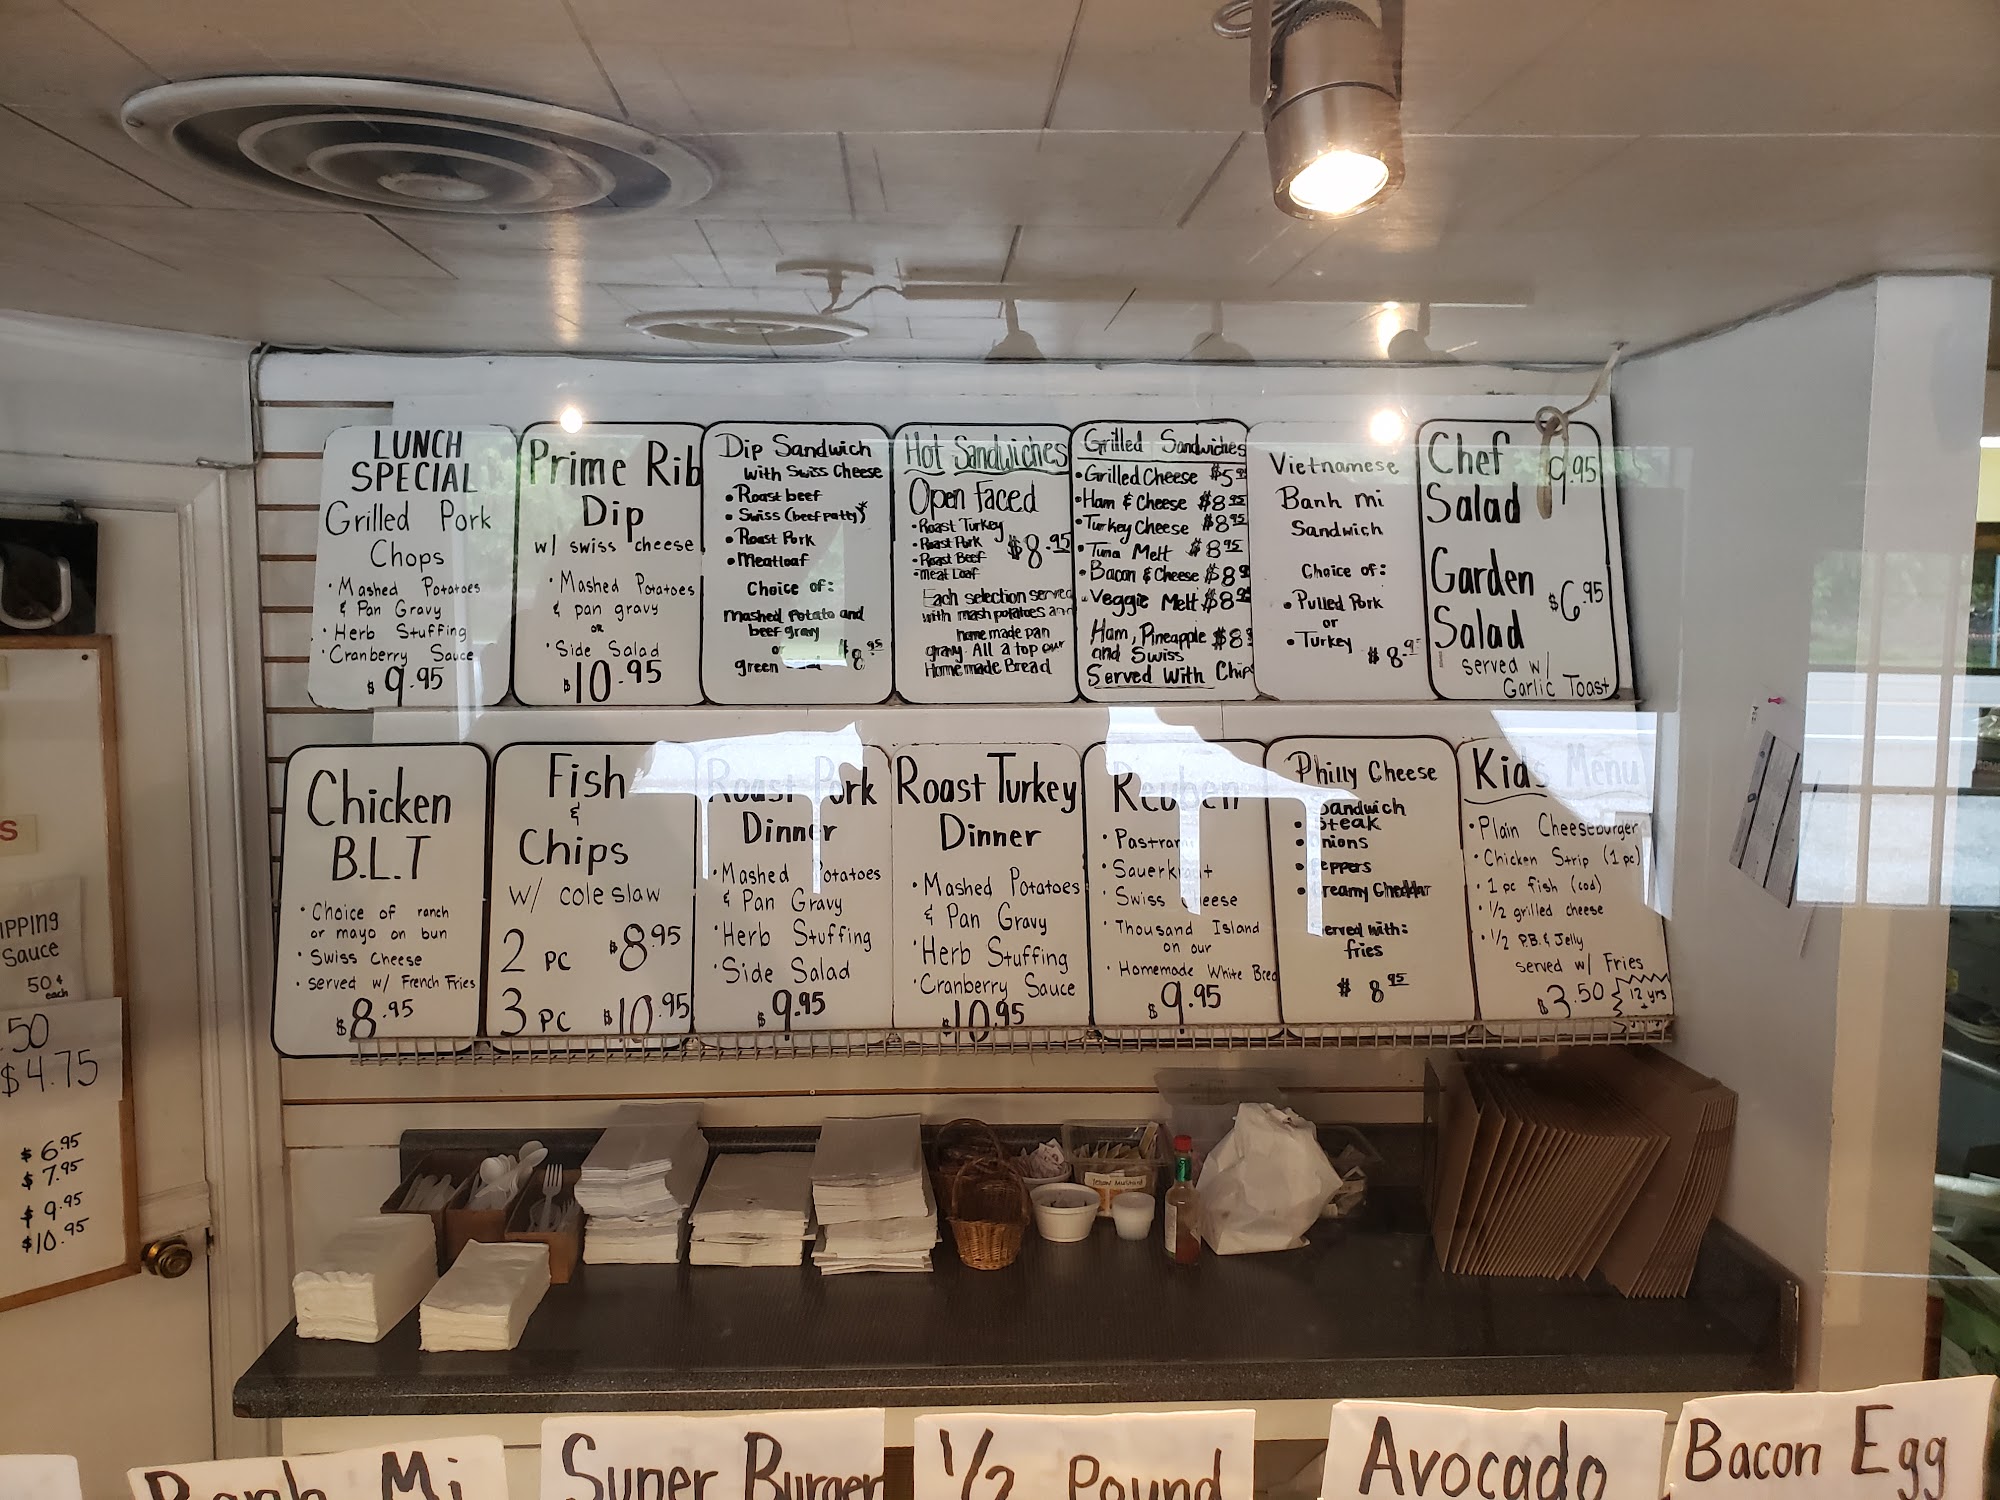 LUNCH
SPECIAL
Grilled Pork
Chops
• Mashed Potatoes
& Pan Gravy
• Herb Stuffing
• Cranberry Sauce
$9.95
Prime Rib
Dip
w/ swiss cheese
• Mashed Potatoes
& pan gravy
or
• Side Salad
$10.95
Dip Sandwich
with Swiss Cheese
• Roast beef
• Swiss (beef patty)*
• Roast Pork
• Meatloaf
Choice of:
Mashed Potato and
beef gravy
or
green
$8.95
Hot Sandwiches
Open Faced
• Roast Turkey
• Roast Pork
• Roast Beef
• Meat Loaf
$8.95
Each selection served
with mash potatoes and
home made pan
gravy. All a top our
Home made Bread
Grilled Sandwiches
• Grilled Cheese $5.95
• Ham & Cheese $8.95
• Turkey Cheese $8.95
• Tuna Melt $8.95
• Bacon & Cheese $8.9
• Veggie Melt $8.95
Ham, Pineapple $8
and Swiss
Served With Chips
Vietnamese
Banh Mi
Sandwich
Choice of:
• Pulled Pork
or
• Turkey $8.9
Chef 9.95
Salad
Garden $6.95
Salad
served w/
Garlic Toast
Chicken
B.L.T
• Choice of ranch
or mayo on bun
• Swiss Cheese
• served w/ French Fries
$8.95
Fish
&
Chips
w/ cole slaw
2 pc $8.95
3 pc $10.95
Roast Pork
Dinner
• Mashed Potatoes
& Pan Gravy
• Herb Stuffing
• Side Salad
$9.95
Roast Turkey
Dinner
• Mashed Potatoes
& Pan Gravy
• Herb Stuffing
• Cranberry Sauce
$10.95
Reuben
• Pastrami
• Sauerkraut
• Swiss Cheese
• Thousand Island
on our
• Homemade White Bred
$9.95
Philly Cheese
Sandwich
• Steak
• Onions
• Peppers
• Creamy Cheddar
Served with:
fries
$8.95
Kids Menu
• Plain Cheeseburger
• Chicken Strip (1 pc)
• 1 pc fish (cod)
• 1/2 grilled cheese
• 1/2 P.B. & Jelly
served w/ Fries
$3.50
12 yrs
IPPING
Sauce
50¢
each
.50
$4.75
$6.95
$7.95
$9.95
$10.95
Yellow Mustard
Banh Mi
Super Burger
1/2 Pound
Avocado
Bacon Egg